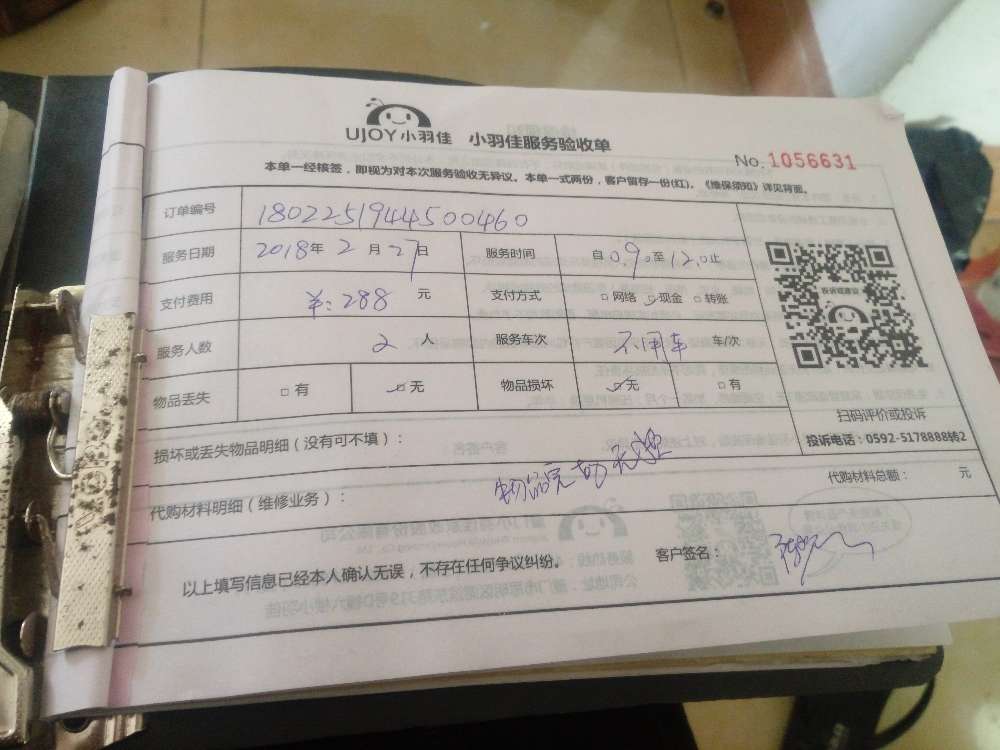 UJOY小羽佳 小羽佳服务验收单
No. 1056631
本单一经核签，即视为对本次服务验收无异议。本单一式两份，客户留存一份(红)。《维保须知》详见背面。
订单编号 1802251944500460
服务日期 2018年 2月 27日 服务时间 自 0.90至12.0止
支付费用 ¥:288 元 支付方式 □网络 ☑现金 □转账
服务人数 2 人 服务车次 不用车 车/次
物品丢失 □有 ☑无 物品损坏 ☑无 □有
投诉或建议
扫码评价或投诉
投诉电话：0592-5178888转2
损坏或丢失物品明细（没有可不填）：
物品完好无损
代购材料明细（维修业务）： 代购材料总额： 元
以上填写信息已经本人确认无误，不存在任何争议纠纷。 客户签名：